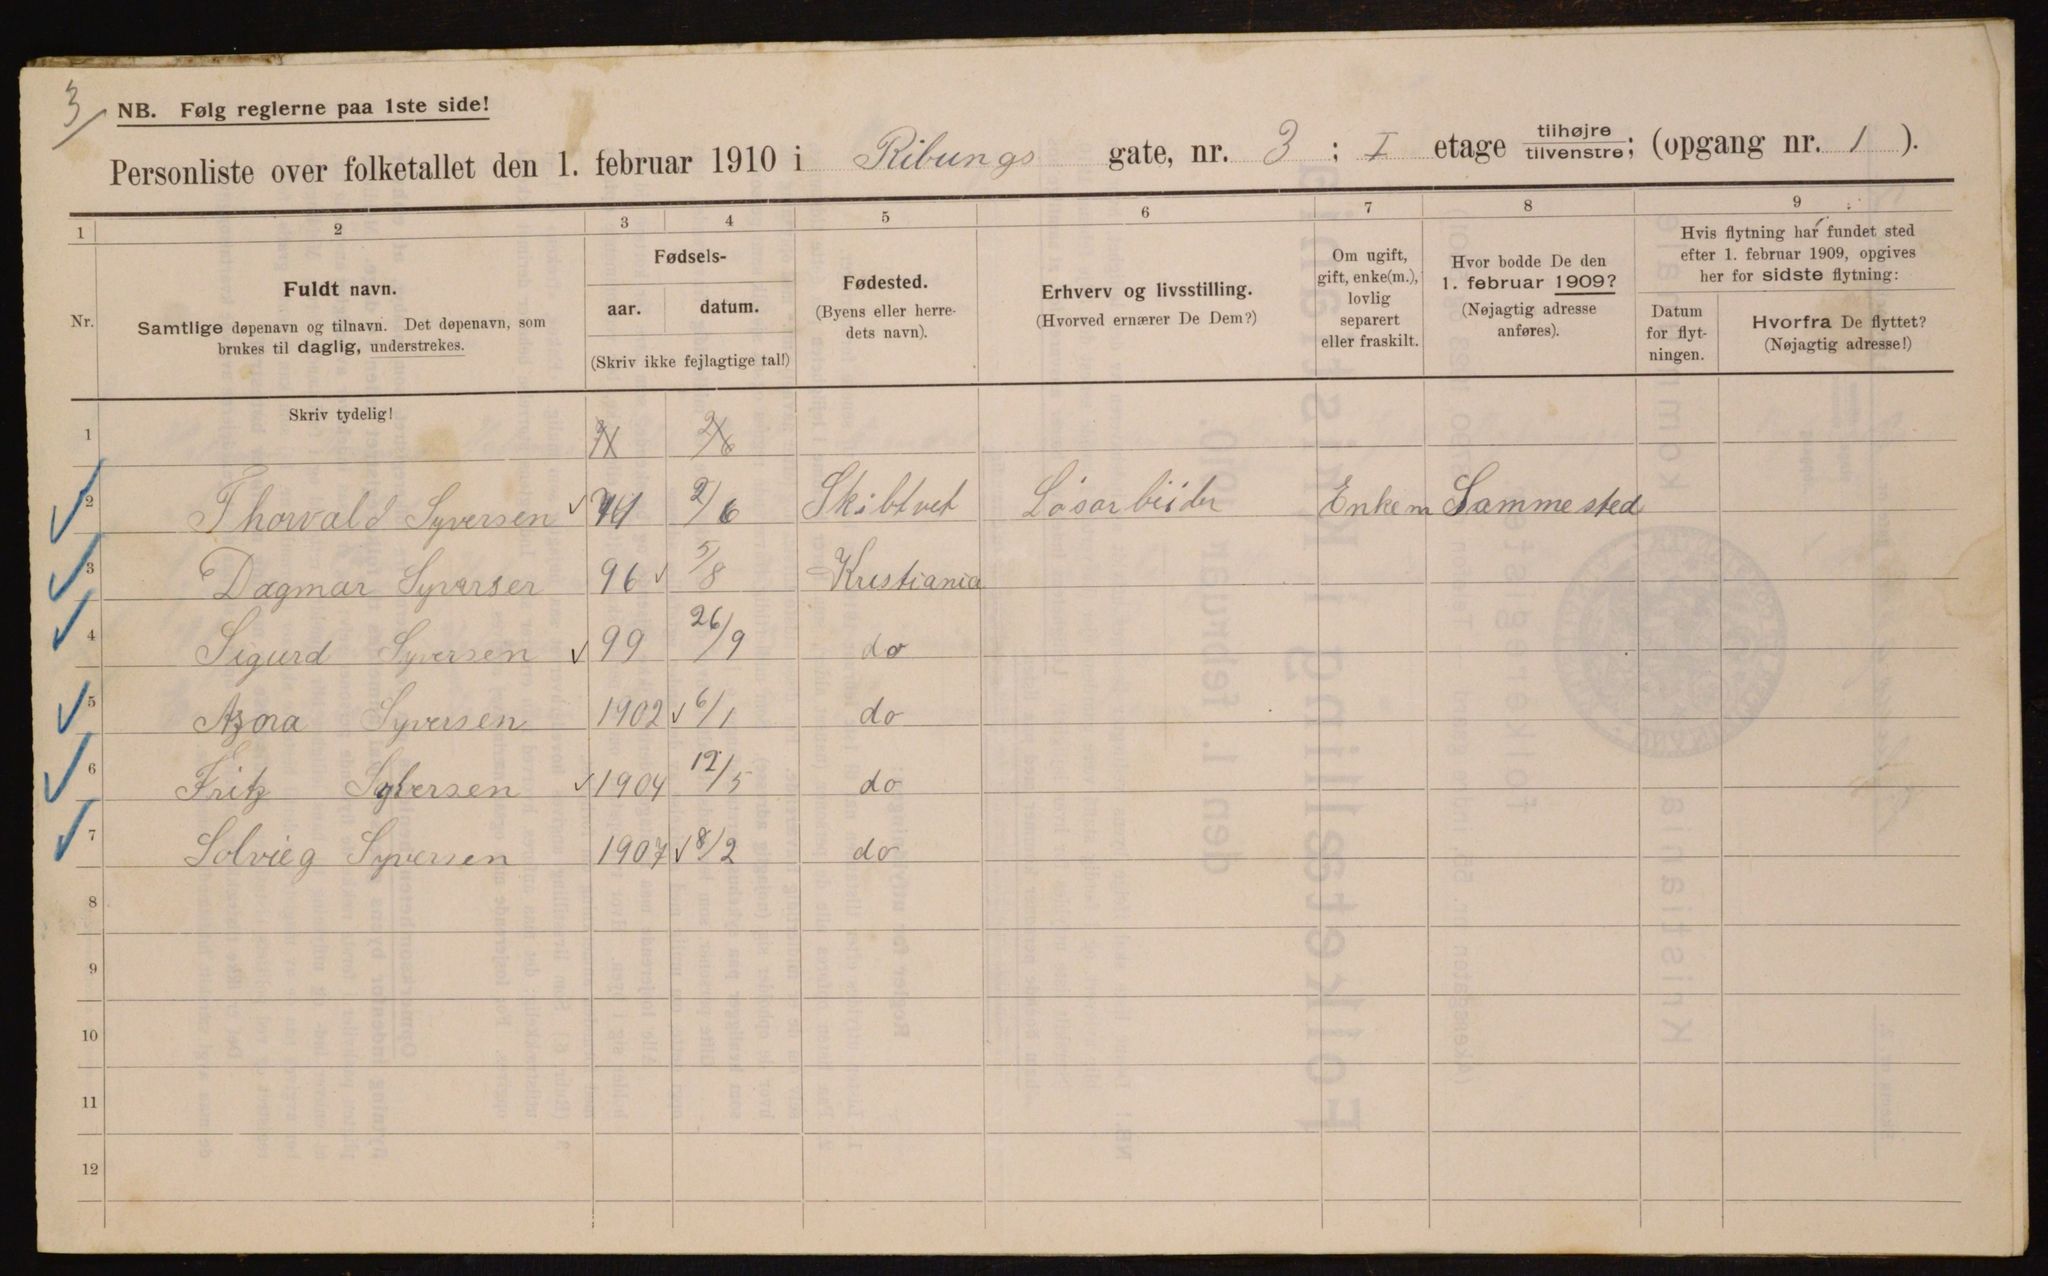 3/
NB. Følg reglerne paa 1ste side!
Personliste over folketallet den 1. februar 1910 i Ribungs gate, nr. 3 ; I etage tilhøjre/tilvenstre; (opgang nr. 1 ).
1 2 3 4 5 6 7 8 9
Nr.
Fuldt navn.
Samtlige døpenavn og tilnavn. Det døpenavn, som
brukes til daglig, understrekes.
Fødsels-
aar. datum.
(Skriv ikke fejlagtige tal!)
Fødested.
(Byens eller herre-
dets navn).
Erhverv og livsstilling.
(Hvorved ernærer De Dem?)
Om ugift,
gift, enke(m.),
lovlig
separert
eller fraskilt.
Hvor bodde De den
1. februar 1909?
(Nøjagtig adresse
anføres).
Hvis flytning har fundet sted
efter 1. februar 1909, opgives
her for sidste flytning:
Datum
for flyt-
ningen.
Hvorfra De flyttet?
(Nøjagtig adresse!)
Skriv tydelig!
1
2 Thorvald Syversen 2/6 Skibtvet Løsarbeider Enkem Sammested
3 Dagmar Syverser 96 5/8 Kristiania
4 Sigurd Syversen 99 26/9 do
5 Azora Syversen 1902 6/1 do
6 Fritz Syversen 1904 12/5 do
7 Solvieg Syversen 1907 8/2 do
8
9
10
11
12